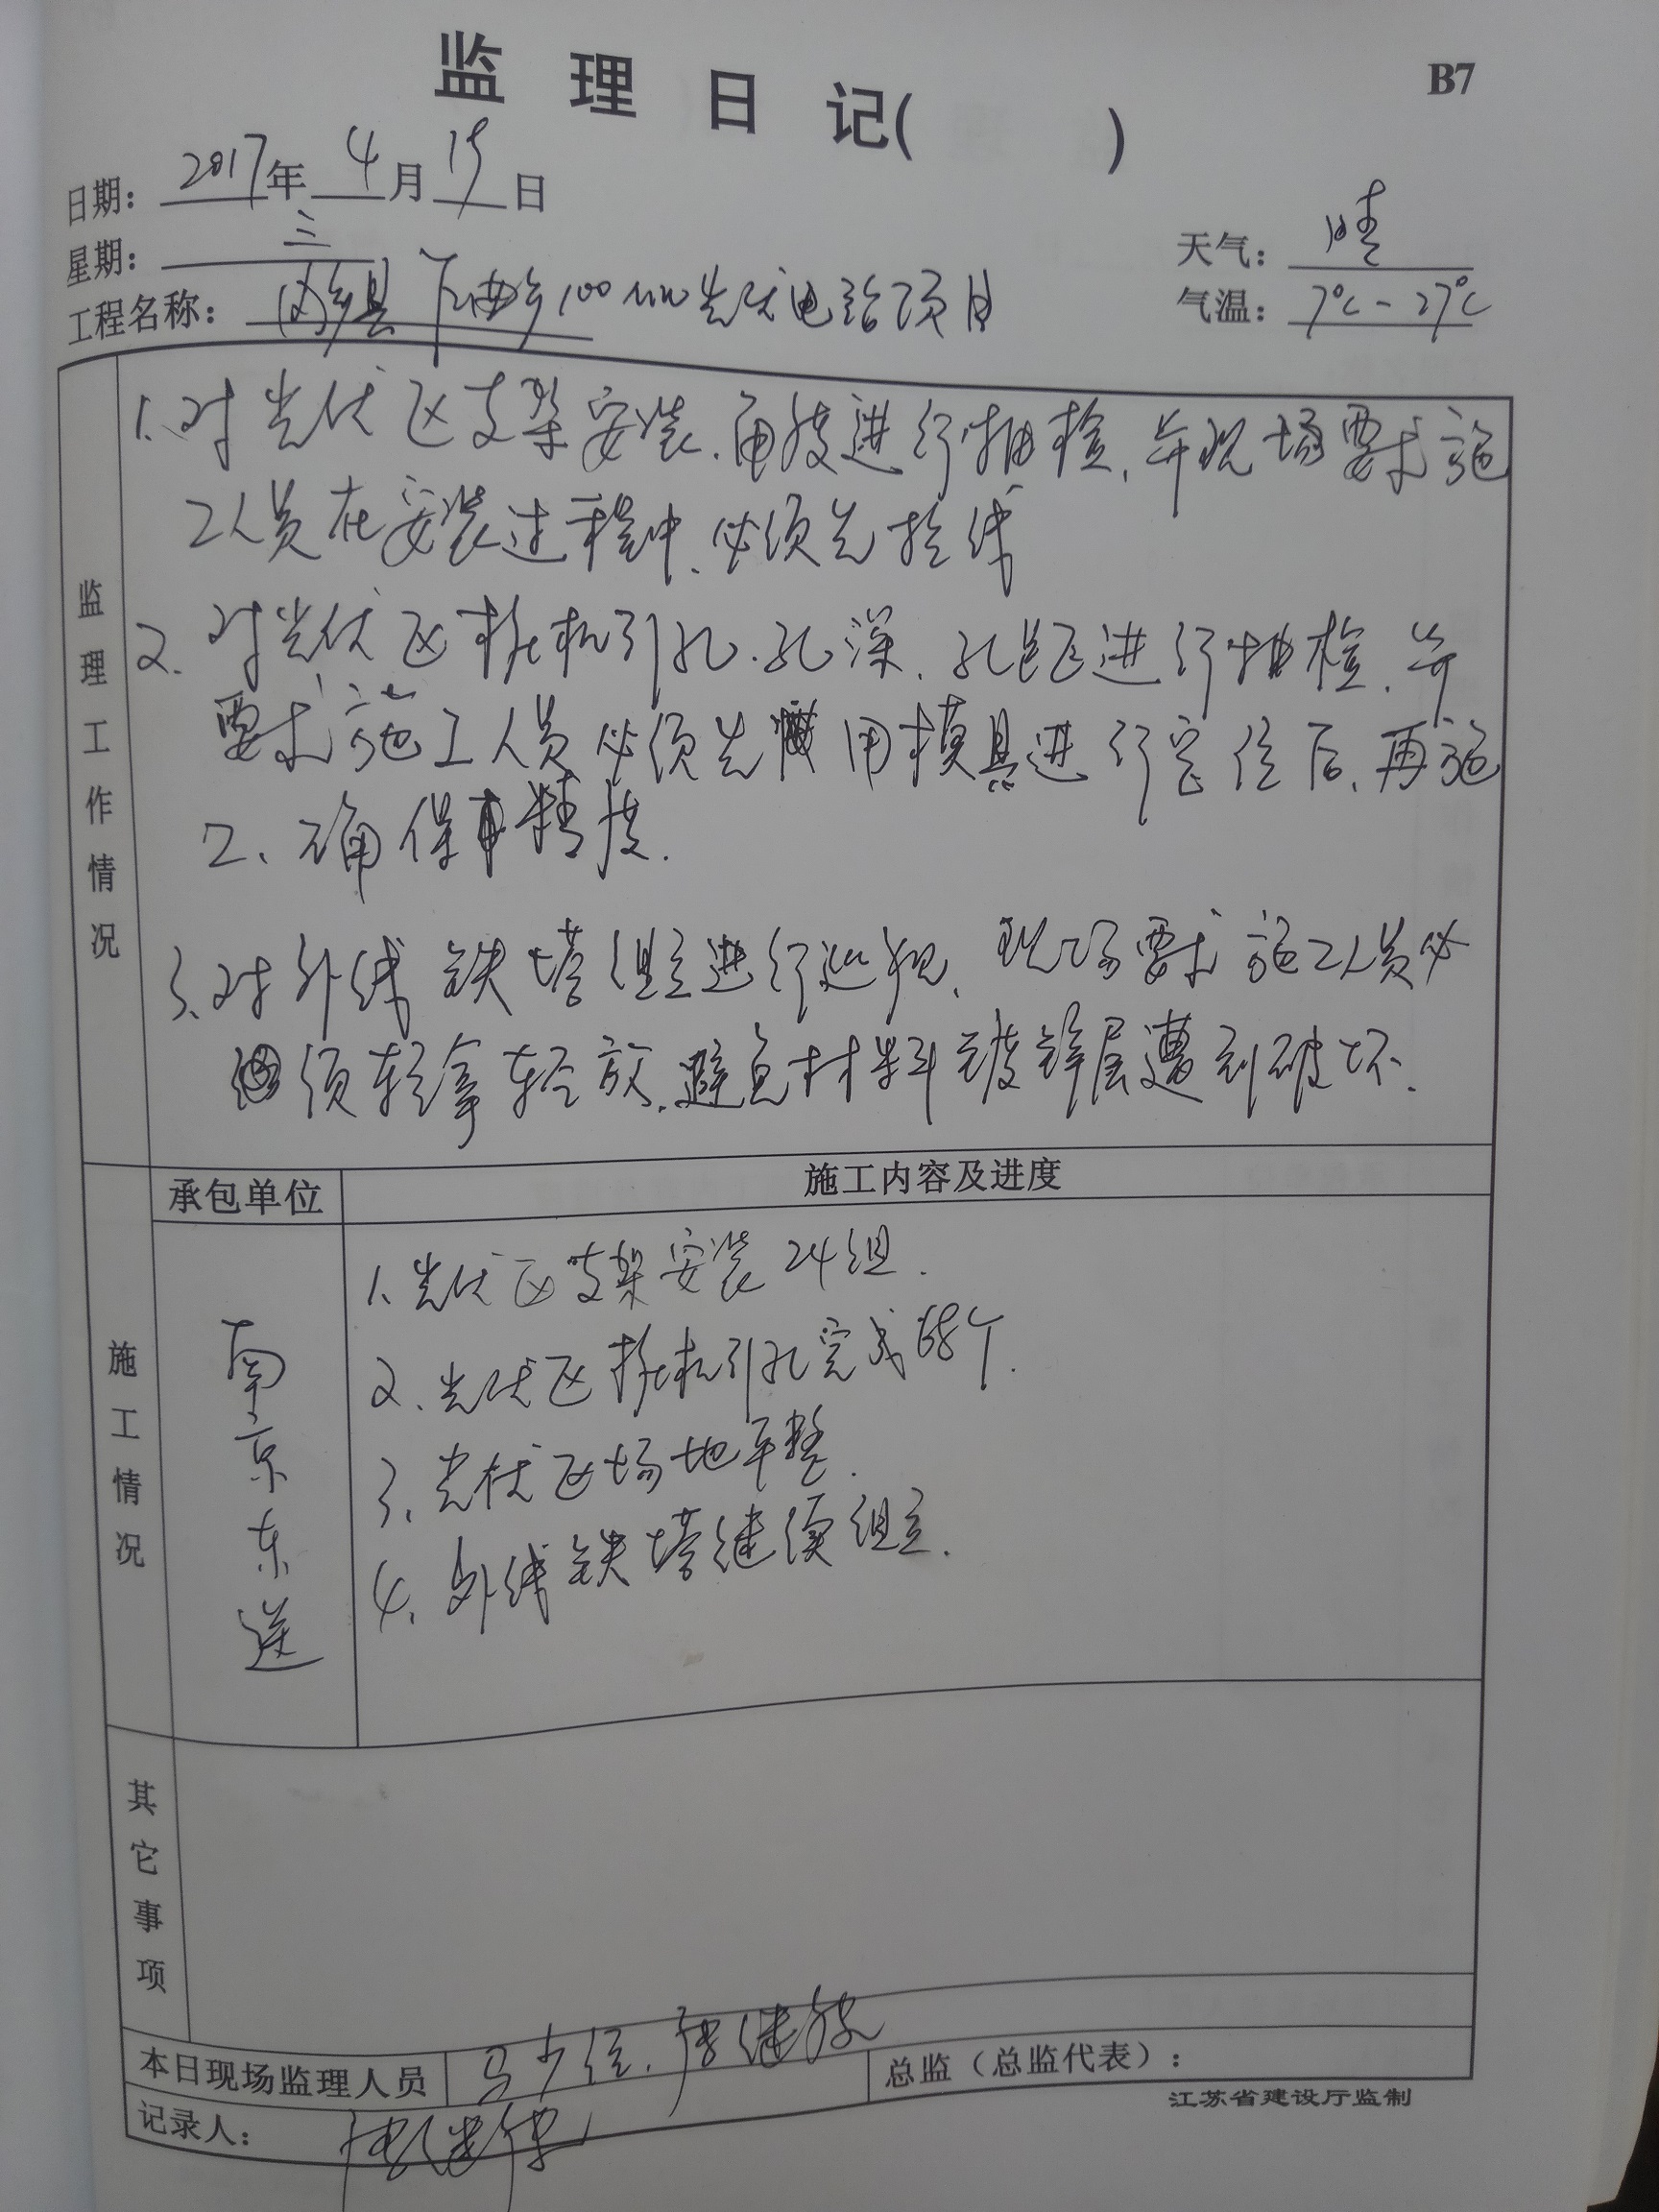 监理日记( )
B7
日期: 2017年 4月 19日
星期: 三
天气: 晴
工程名称: 内乡县 下曲乡100MW光伏电站项目
气温: 7℃-27℃
监理工作情况
1.对光伏区支架安装.角度进行抽检,并现场要求施
工人员在安装过程中,必须先拉线
2.对光伏区桩机引孔.孔深.孔距进行抽检.并
要求施工人员必须先用模具进行定位后,再施
工、确保精度.
3.对外线铁塔组立进行巡视,现场要求施工人员必
须轻拿轻放.避免材料镀锌层遭到破坏.
承包单位
施工内容及进度
施工情况
南京东送
1.光伏区支架安装24组.
2.光伏区桩机引孔完成68个.
3.光伏区场地平整.
4.外线铁塔继续组立.
其它事项
本日现场监理人员
总监(总监代表):
记录人:
江苏省建设厅监制